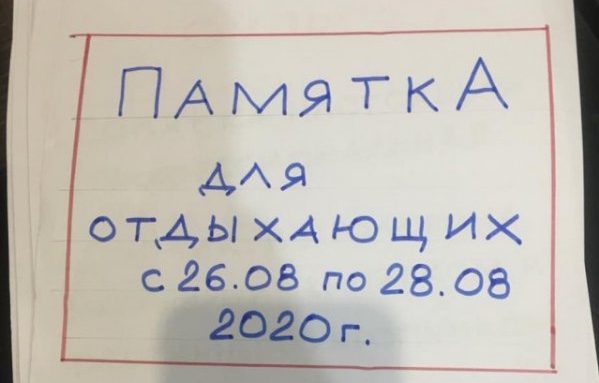 ПАМЯТКА
ДЛЯ
ОТДЫХАЮЩИХ
с 26.08 по 28.08
2020г.